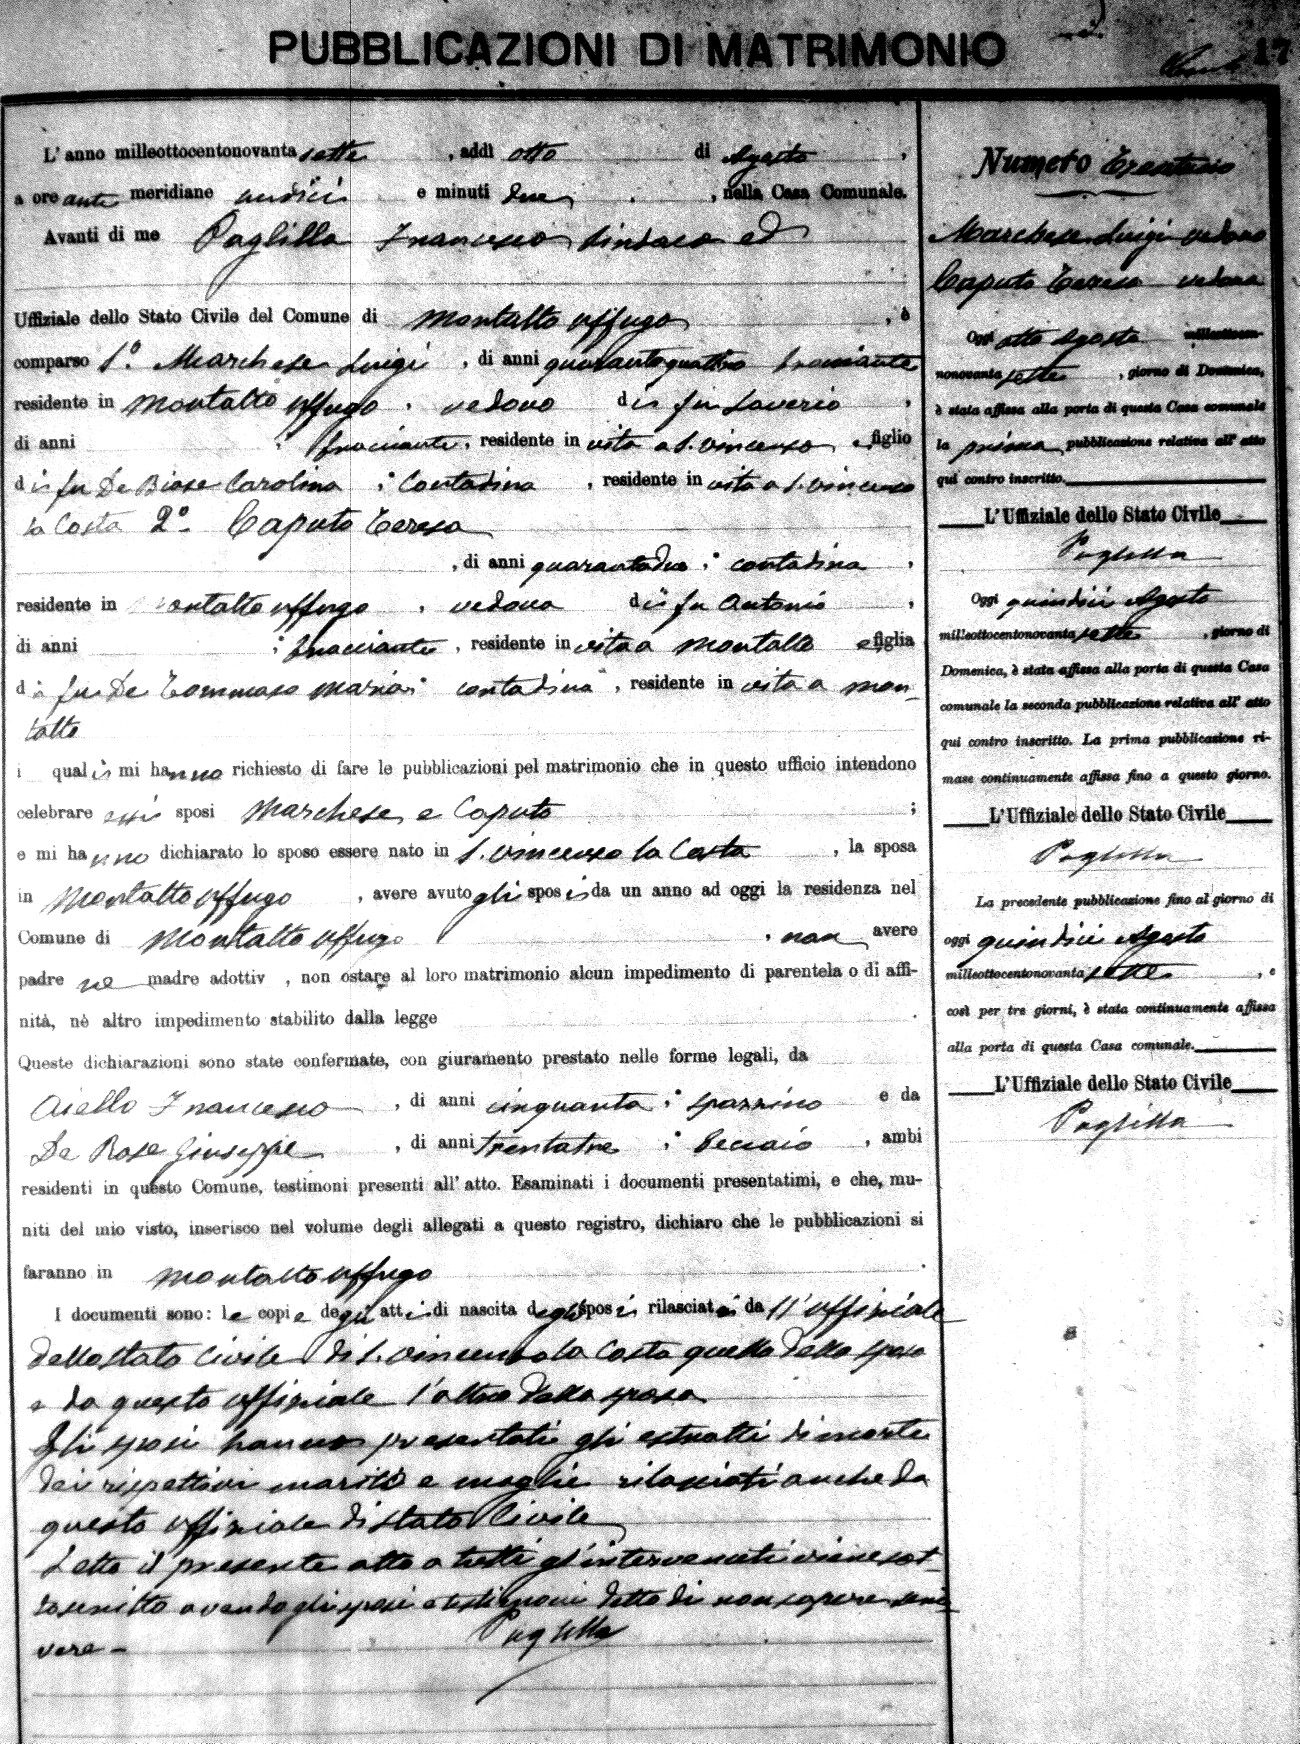 PUBBLICAZIONI DI MATRIMONIO
17
L'anno milleottocentonovanta sette , addì otto di Agosto ,
a ore anti meridiane undici e minuti due , nella Casa Comunale.
Avanti di me Paglilla Francesco Sindaco ed
Uffiziale dello Stato Civile del Comune di Montalto Uffugo , è
comparso 1º. Marchese Luigi , di anni quarantaquattro bracciante
residente in Montalto Uffugo , vedovo di fu Saverio ,
di anni ; bracciante , residente in vita a S. Vincenzo e figlio
di fu De Biase Carolina ; Contadina , residente in vita a S. Vincenzo
la Costa 2º. Caputo Teresa
, di anni quarantadue ; contadina ,
residente in Montalto Uffugo , vedova di fu Antonio ,
di anni ; bracciante , residente in vita a Montalto e figlia
di fu De Tommaso Maria ; contadina , residente in vita a Mon-
talto
i quali mi hanno richiesto di fare le pubblicazioni pel matrimonio che in questo ufficio intendono
celebrare essi sposi Marchese e Caputo ;
e mi hanno dichiarato lo sposo essere nato in S. Vincenzo la Costa , la sposa
in Montalto Uffugo , avere avuto gli sposi da un anno ad oggi la residenza nel
Comune di Montalto Uffugo , non avere
padre ne madre adottiv , non ostare al loro matrimonio alcun impedimento di parentela o di affi-
nità, nè altro impedimento stabilito dalla legge .
Queste dichiarazioni sono state confermate, con giuramento prestato nelle forme legali, da
Aiello Francesco , di anni cinquanta ; spazzino e da
De Rose Giuseppe , di anni trentatre ; beccaio , ambi
residenti in questo Comune, testimoni presenti all'atto. Esaminati i documenti presentatimi, e che, mu-
niti del mio visto, inserisco nel volume degli allegati a questo registro, dichiaro che le pubblicazioni si
faranno in Montalto Uffugo .
I documenti sono: le copie degli atti di nascita degli sposi rilasciati da ll'uffiziale
dello stato Civile di S. Vincenzo la Costa quella dello sposo
e da questo uffiziale l'altra della sposa
Gli sposi hanno presentati gli estratti di morte
dei rispettivi marito e moglie rilasciati anche da
questo uffiziale di stato Civile
Letto il presente atto a tutti gl'intervenuti viene sot-
toscritto avendo gli sposi e testimoni detto di non sapere scri-
vere -
Paglilla
Numero Trentuno
Marchese Luigi vedovo
Caputo Teresa vedova
Oggi otto Agosto milleottocen-
nonovanta sette , giorno di Domenica,
è stata affissa alla porta di questa Casa comunale
la prima pubblicazione relativa all'atto
qui contro inscritto.
L'Uffiziale dello Stato Civile
Paglilla
Oggi quindici Agosto
milleottocentonovanta sette , giorno di
Domenica, è stata affissa alla porta di questa Casa
comunale la seconda pubblicazione relativa all'atto
qui contro inscritto. La prima pubblicazione ri-
mase continuamente affissa fino a questo giorno.
L'Uffiziale dello Stato Civile
Paglilla
La precedente pubblicazione fino al giorno di
oggi quindici Agosto
milleottocentonovanta sette , e
così per tre giorni, è stata continuamente affissa
alla porta di questa Casa comunale.
L'Uffiziale dello Stato Civile
Paglilla